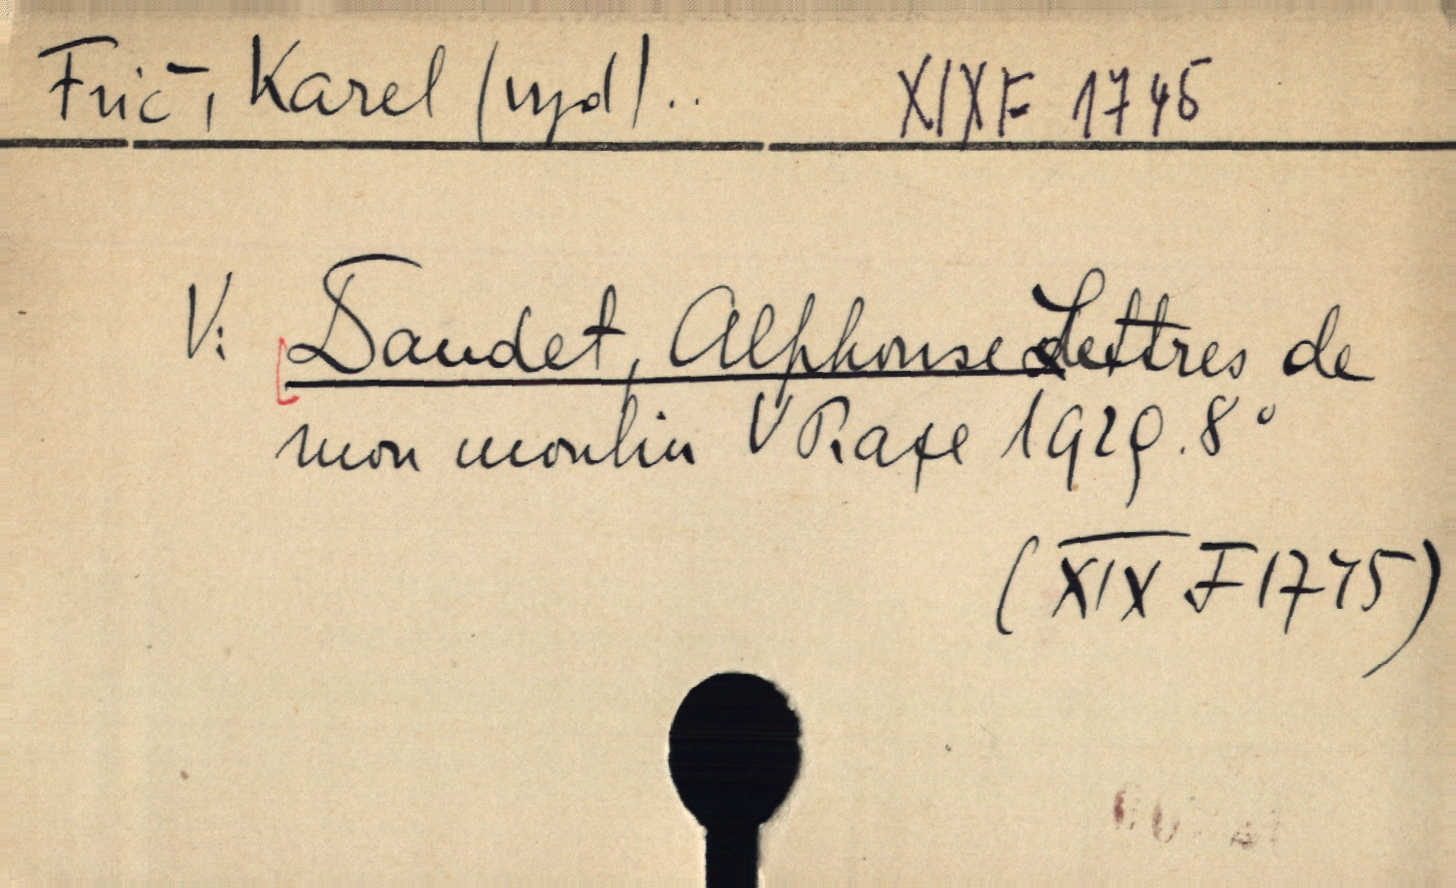 Frič, Karel (vyd). .. XIX F 1745
V: Daudet, Alphonse Lettres de
mon moulin V Praze 1929. 8°
(XIX F 1745)